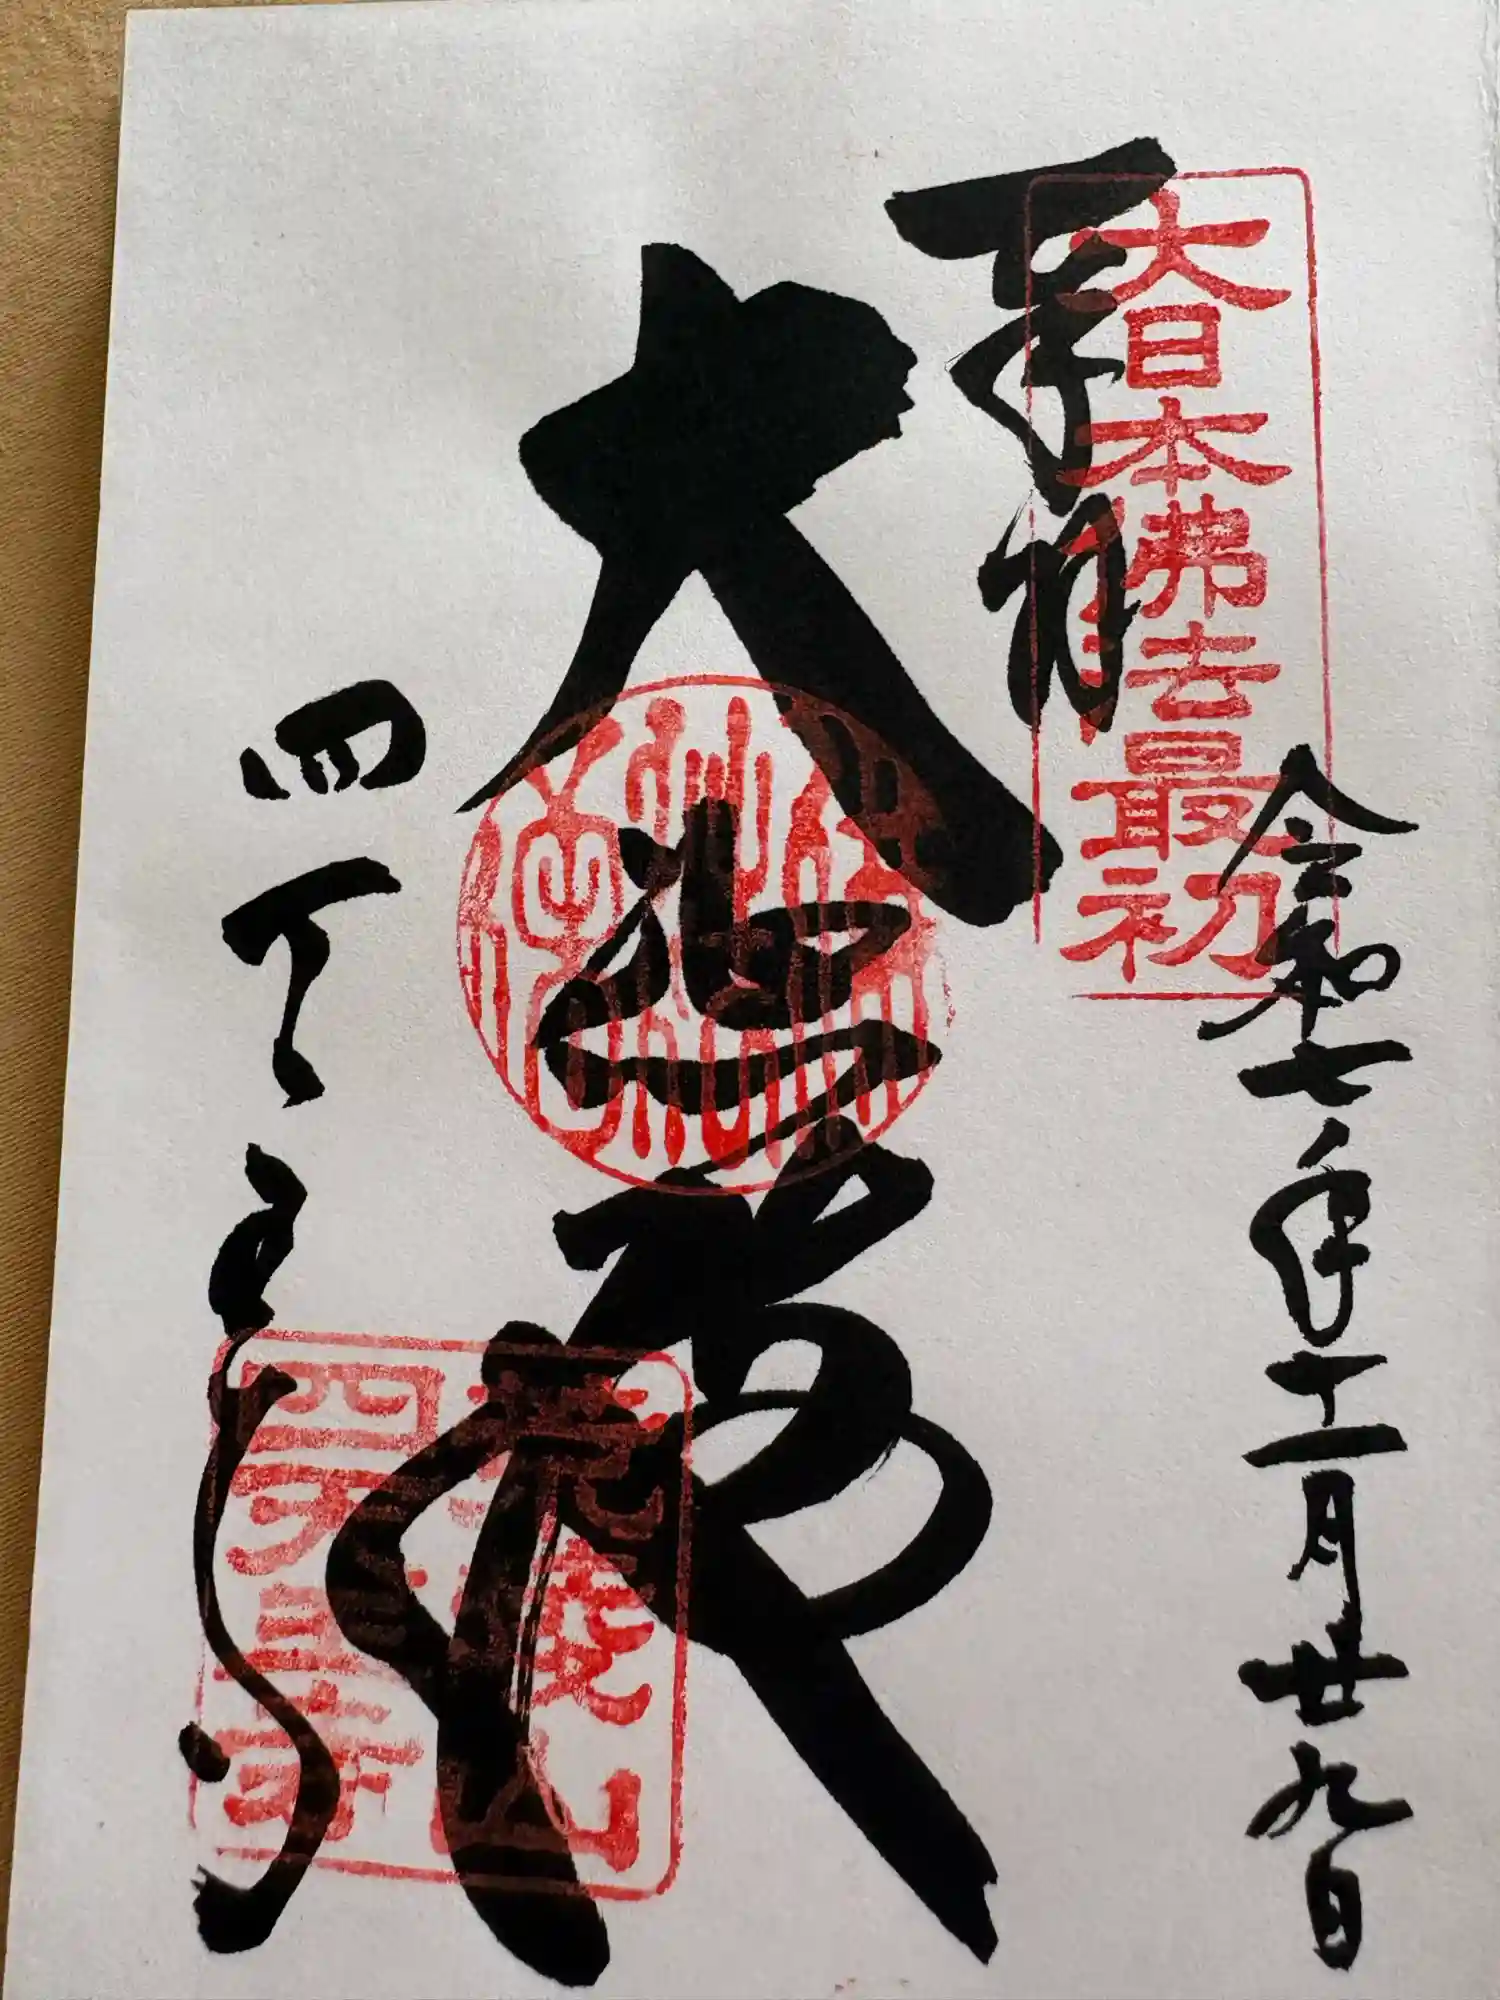 令和七年十一月廿九日
大日本佛法最初
奉拝
大悲殿
四天王寺
荒陵山
四天王寺